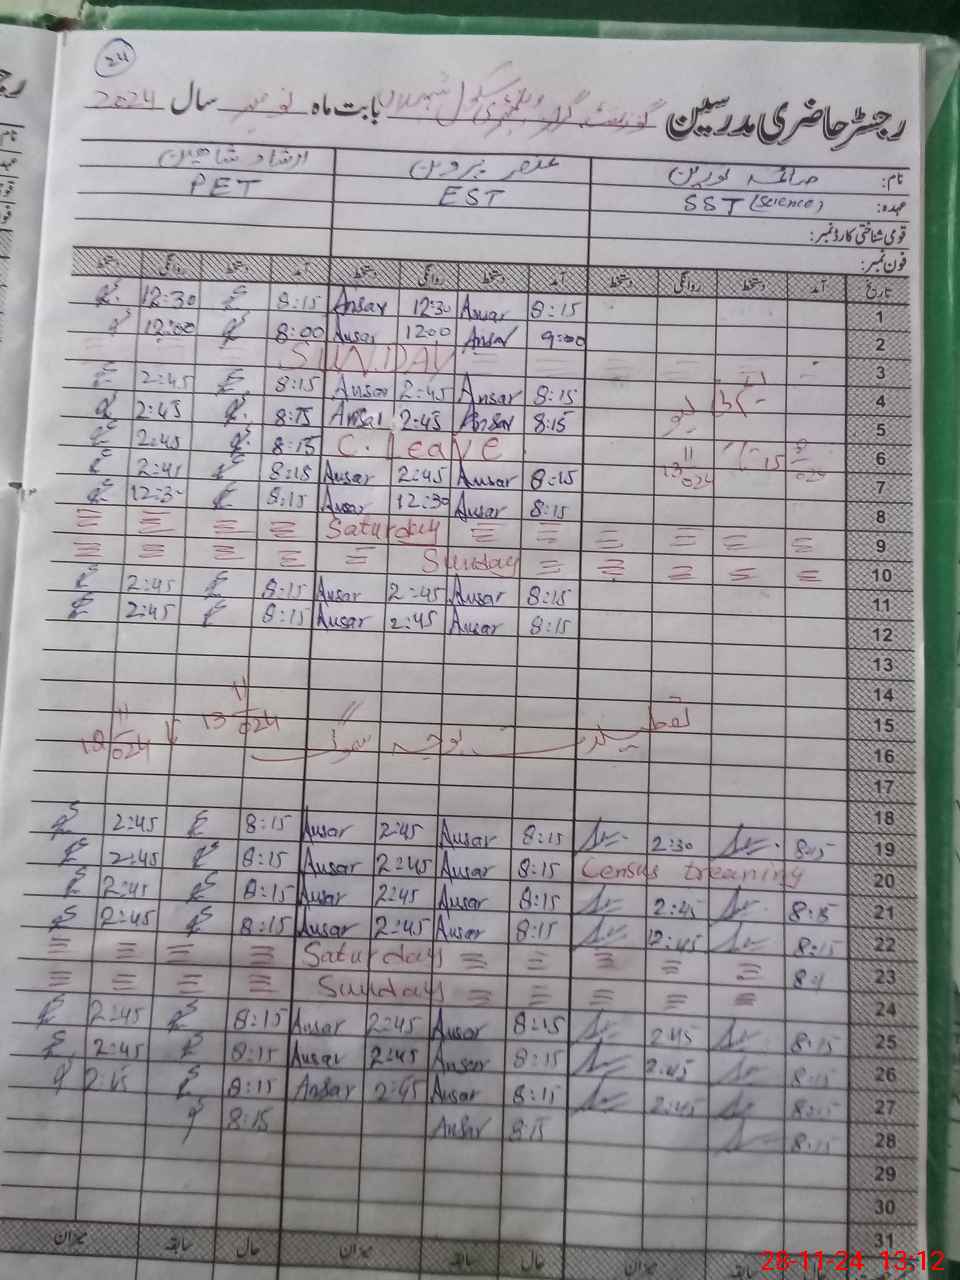 24
رجسٹر حاضری مدرسین گورنمنٹ گرلز ہائی سکول بابت ماہ نومبر سال 2024
نام: صائمہ نورین عنصر پروین ارشاد شاھین
عہدہ: SST (Science) EST PET
قومی شناختی کارڈ نمبر:
فون نمبر:
تاریخ آمد دستخط روانگی دستخط آمد دستخط روانگی دستخط آمد دستخط روانگی دستخط
1 8:15 Ansar 12:30 Ansar 8:15 12:30
2 9:00 Ansar 12:00 Ansar 8:00 12:00
3 SUNDAY
4 8:15 Ansar 2:45 Ansar 8:15 2:45
5 8:15 Ansar 2:45 Ansar 8:15 2:45
6 C. Leave 8:15 2:45
7 8:15 Ansar 2:45 Ansar 8:15 2:45
8 8:15 Ansar 12:30 Ansar 8:15 12:30
9 Saturday
10 Sunday
11 8:15 Ansar 2:45 Ansar 8:15 2:45
12 8:15 Ansar 2:45 Ansar 8:15 2:45
13
14
15 تعطیلات بوجہ سموگ 13 11 024
16
17
18 8:15 Ansar 2:45 Ansar 8:15 2:45
19 8:15 2:30 8:15 Ansar 2:45 Ansar 8:15 2:45
20 Census treaning 8:15 Ansar 2:45 Ansar 8:15 2:45
21 8:15 2:45 8:15 Ansar 2:45 Ansar 8:15 2:45
22 8:15 12:45
23 Saturday
24 Sunday
25 8:15 2:45 8:15 Ansar 2:45 Ansar 8:15 2:45
26 8:15 2:45 8:15 Ansar 2:45 Ansar 8:15 2:45
27 8:15 2:45 8:15 Ansar 2:45 Ansar 8:15 2:45
28 8:15 8:15 Ansar 8:15
29
30
31
حال سابقہ میزان حال سابقہ میزان
28-11-24 13:12